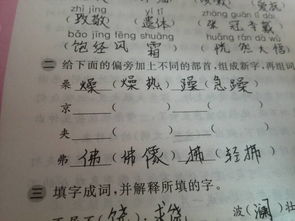 zhì jìng yí tǐ zhāng guān lǐ dài
(致敬) (遗体) (张冠李戴)
bǎo jīng fēng shuāng huǎng rán dà wù
(饱经风 霜) (恍然大悟)
二 给下面的偏旁加上不同的部首,组成新字,再组词
喿 燥 (燥热) 躁 (急躁)
京 ( ) ( )
夹 ( ) ( )
弗 佛 (佛像) 拂 (轻拂)
三 填字成词,并解释所填的字。
波(澜)壮